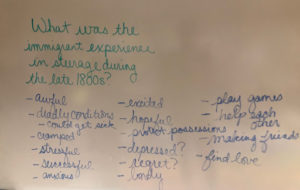 What was the
immigrant experience
in steerage during
the late 1800s?
- awful
- deadly conditions
- could get sick
- cramped
- stressful
- successful
- anxious
- excited
- hopeful
- protect possessions
- depressed?
- regret?
- lonely
- play games
- help each
other
- making friends
- find love